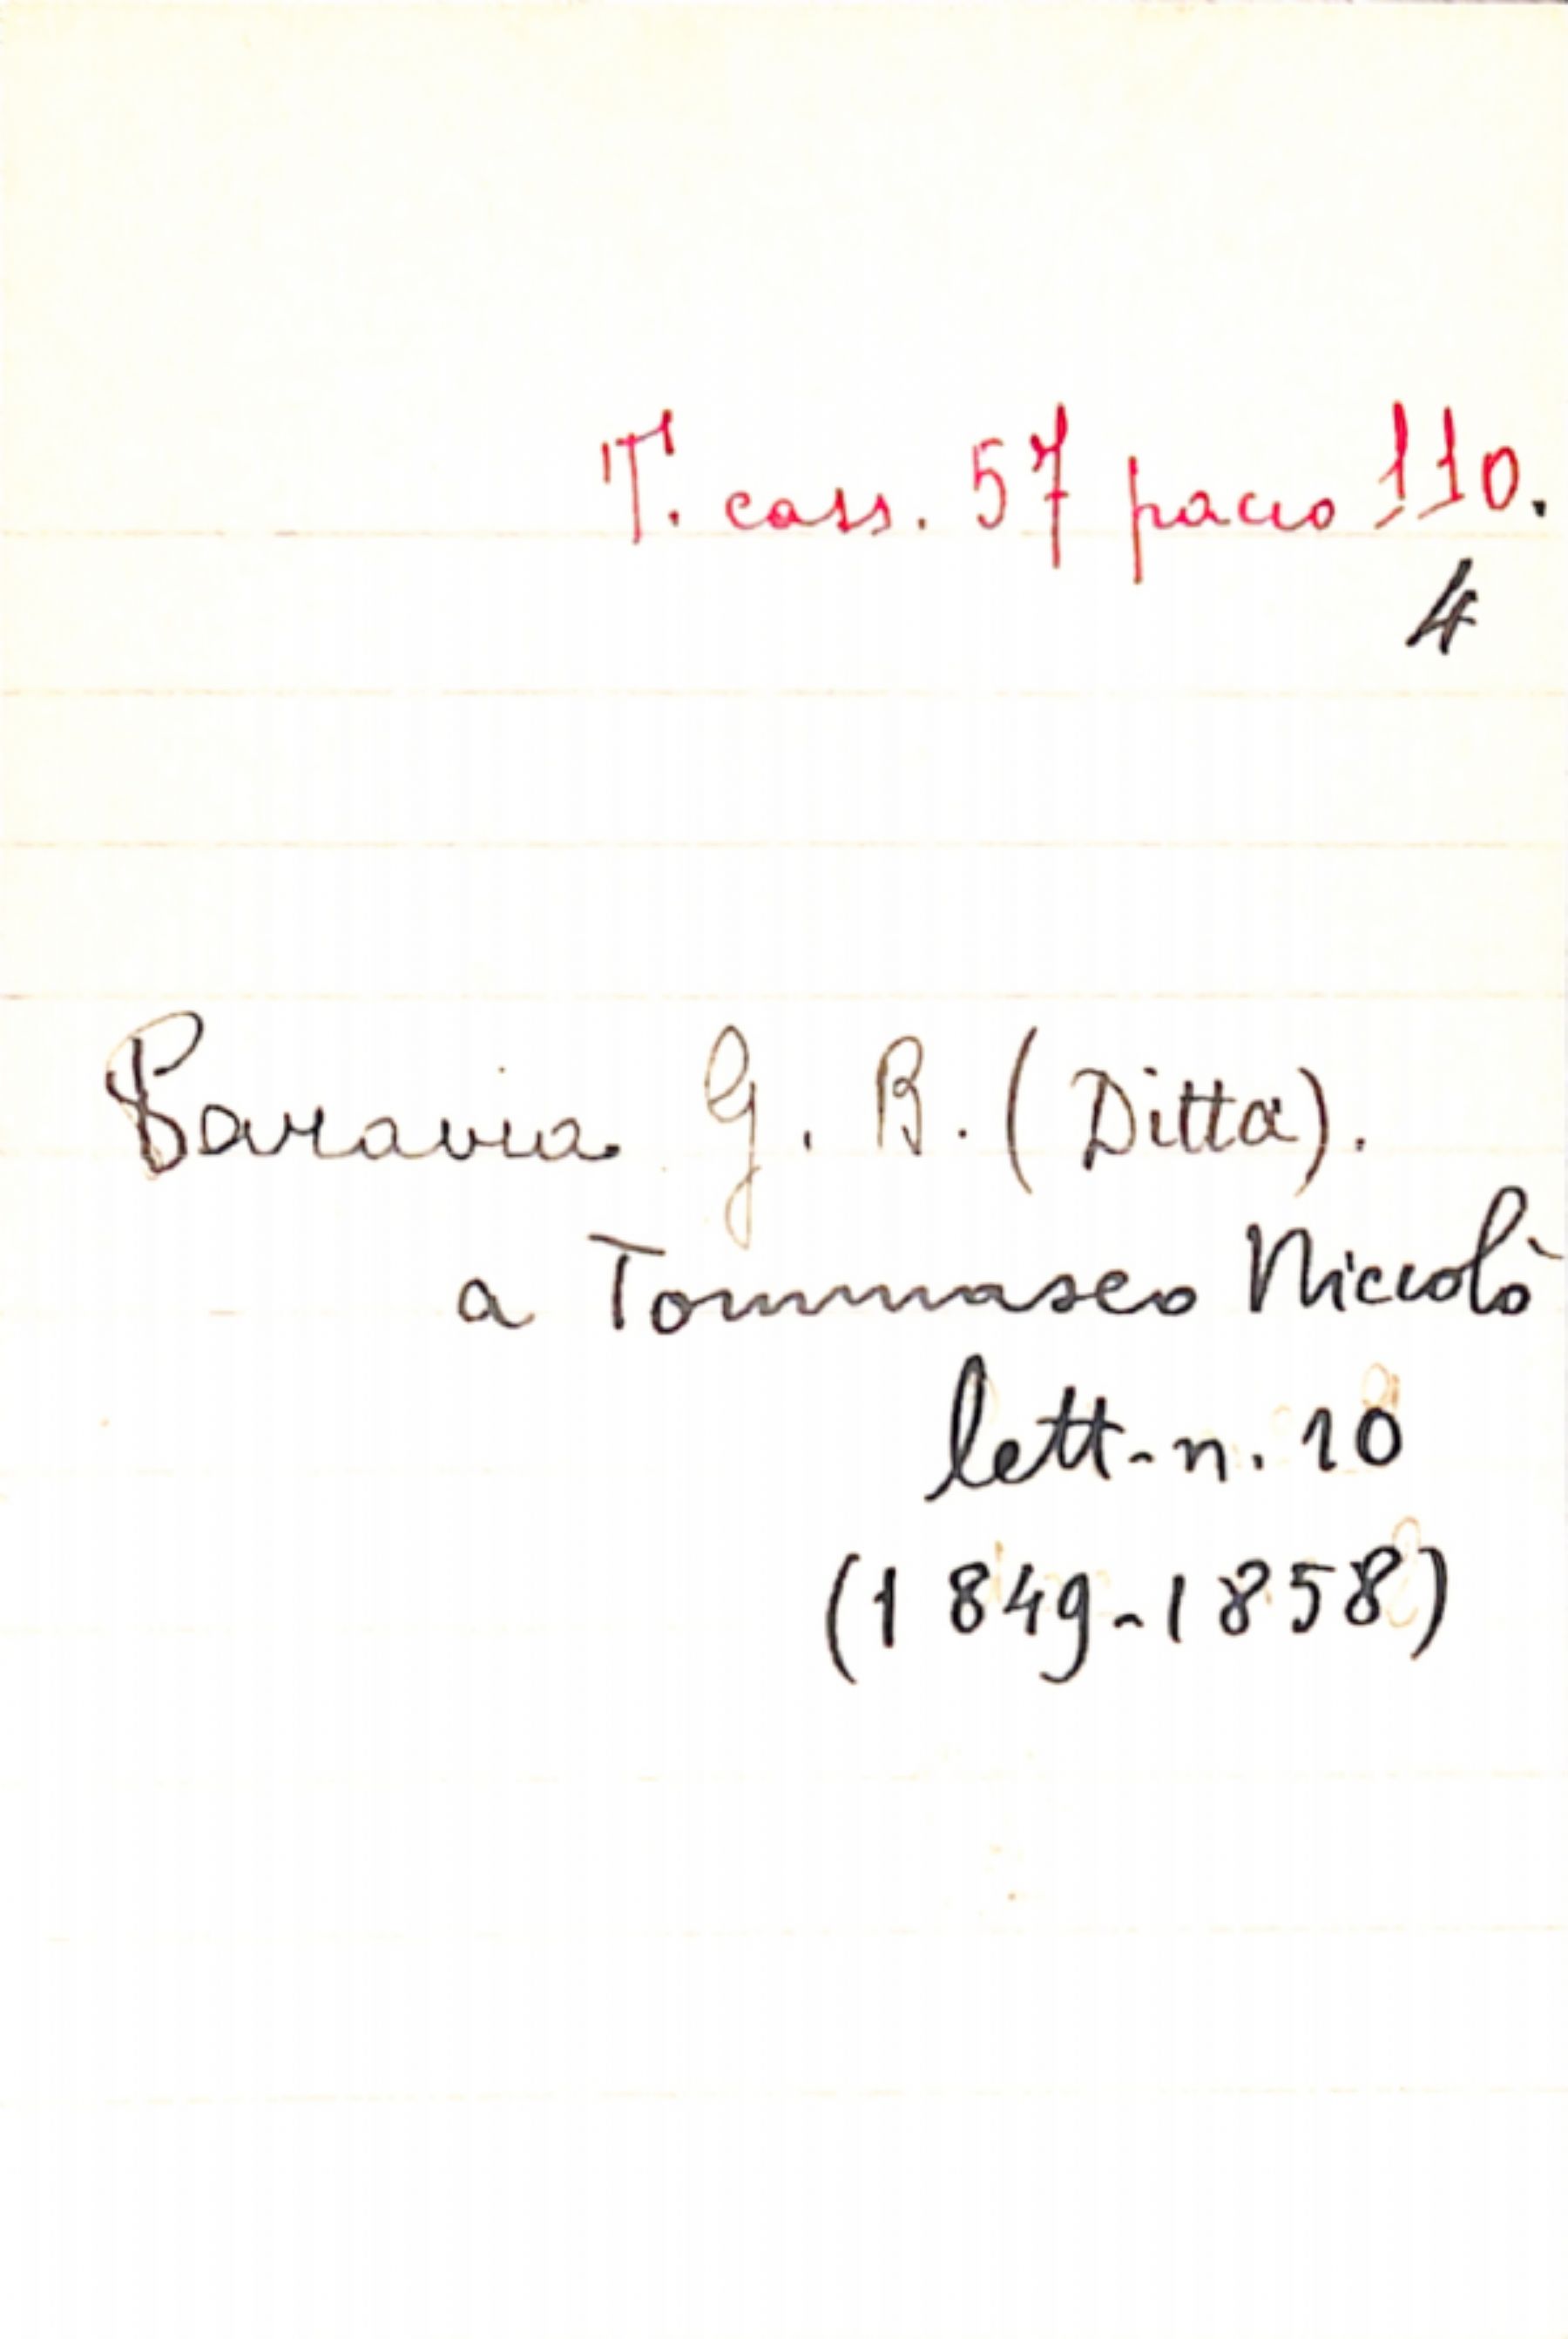 T. cass. 57 pacco 110.
4
Paravia G. B. (Ditta).
a Tommaseo Niccolò
lett. n. 10
(1849-1858)